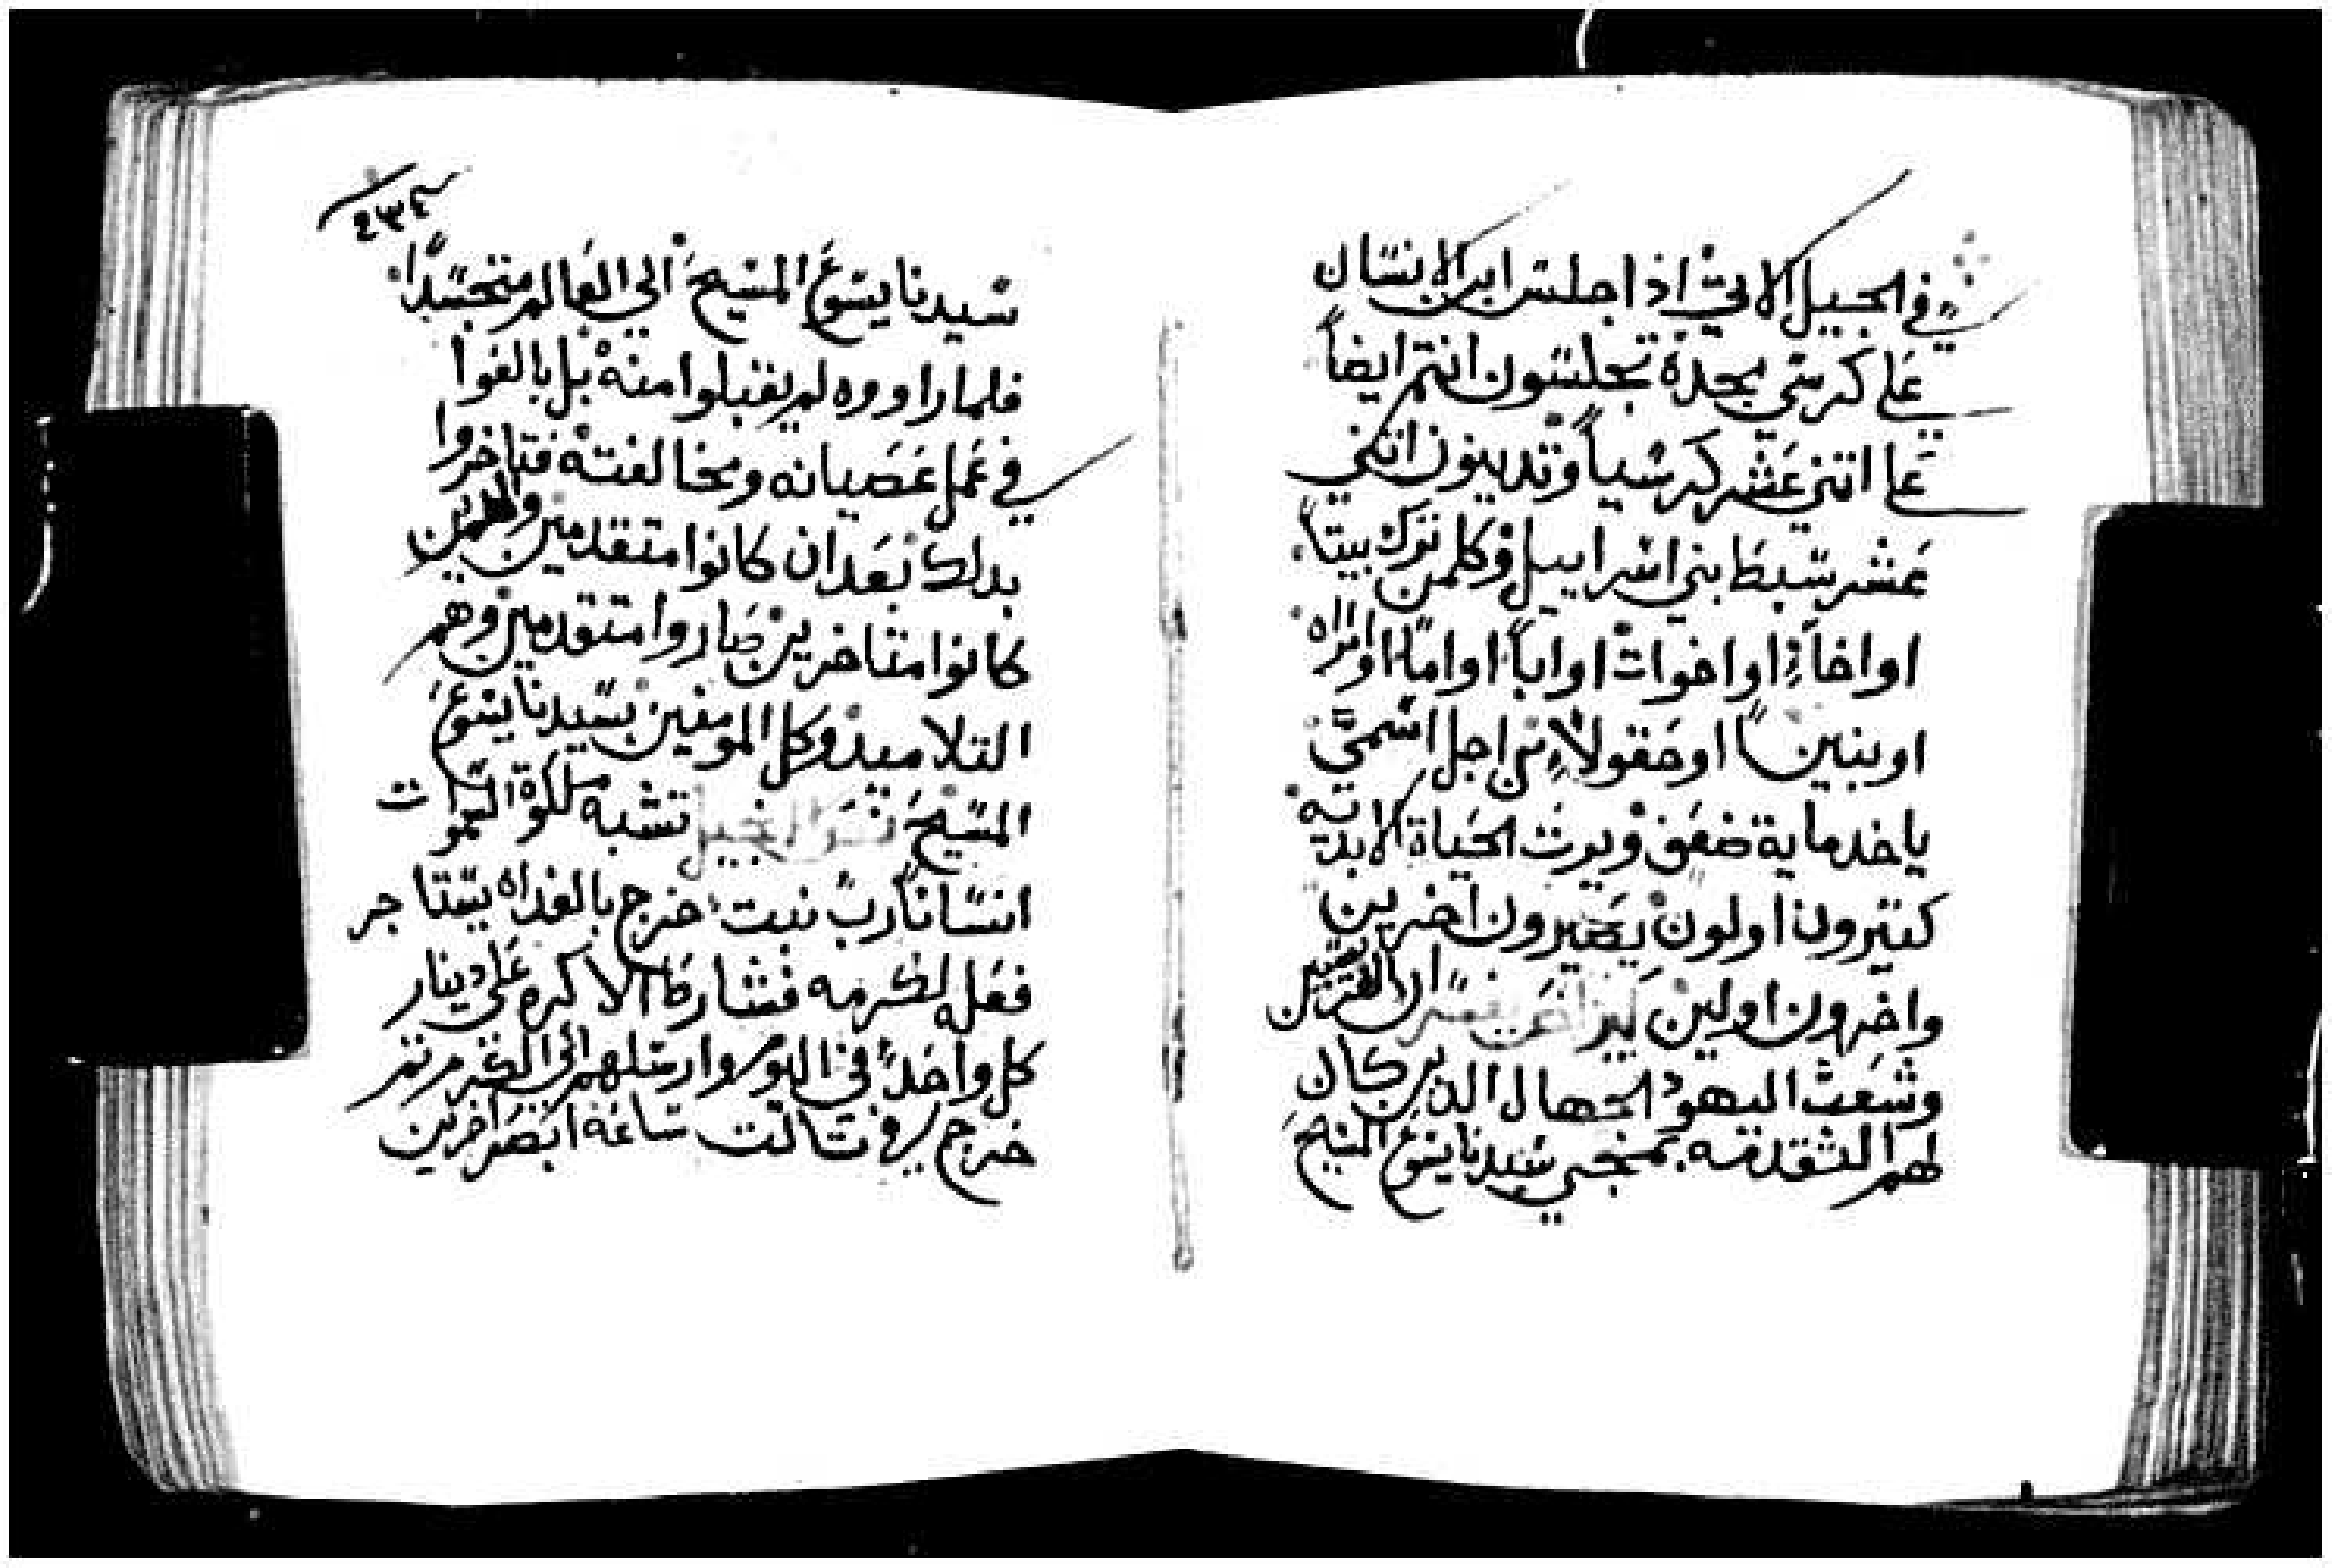 في الجيل الاتي اذا جلس ابن الانسان
على كرسي مجده تجلسون انتم ايضاً
على اتني عشر كرسياً وتدينون اتني
عشر سبط بني اسراييل وكلمن ترك بيتاً
او اخاً او اخوات او اباً او اماً او امراه
او بنين او حقولاً من اجل اسمي
ياخد ماية ضعف ويرث الحياة الابديه
كتيرون اولون يصيرون اخرين
واخرون اولين
وشعب اليهود الجهال الدين كان
لهم التقدمه بمجي سيدنا يسوع المسيح
٤٣٤
سيدنا يسوع المسيح الي العالم متجسداً
فلما راووه لم يقبلوا منه بل بالغوا
في عمل عصيانه ومخالفته فتاخروا
بدلك بعد ان كانوا متقدمين والدين
كانوا متاخرين صاروا متقدمين وهم
التلاميد وكل المومنين بسيدنا يسوع
المسيح تشبه ملكوة السموات
انساناً رب بيت خرج بالغداه يستاجر
فعله لكرمه فشارط الاكره على دينار
كل واحد في اليوم وارسلهم الي الكرم تم
خرج في تالت ساعة ابصر اخرين